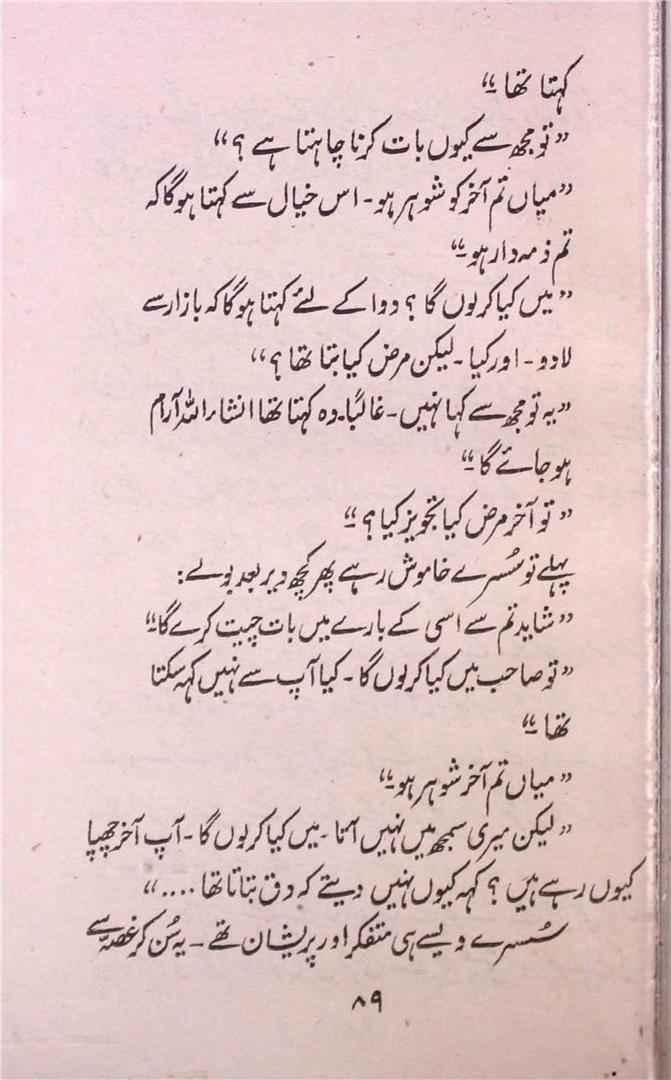 کہتا تھا ۔“
”تو مجھ سے کیوں بات کرنا چاہتا ہے ؟“
”میاں تم آخر کو شوہر ہو۔ اس خیال سے کہتا ہوگا کہ
تم ذمہ دار ہو۔“
”میں کیا کرلوں گا ؟ دوا کے لئے کہتا ہوگا کہ بازار سے
لادو۔ اور کیا۔ لیکن مرض کیا بتا تھا ؟“
”یہ تو مجھ سے کہا نہیں۔ غالباً۔ وہ کہتا تھا انشاء اللہ آرام
ہو جائے گا ۔“
”تو آخر مرض کیا تجویز کیا ؟ ۔“
پہلے تو سُسرے خاموش رہے پھر کچھ دیر بعد بولے:
”شاید تم سے اسی کے بارے میں بات چیت کرے گا۔“
”تو صاحب میں کیا کرلوں گا۔ کیا آپ سے نہیں کہہ سکتا
تھا ۔“
”میاں تم آخر شوہر ہو۔“
”لیکن میری سمجھ میں نہیں آتا۔ میں کیا کرلوں گا۔ آپ آخر چھپا
کیوں رہے ہیں ؟ کہہ کیوں نہیں دیتے کہ دق بتاتا تھا ....“
سُسرے ویسے ہی متفکر اور پریشان تھے۔ یہ سُن کر غصّہ سے
۸۹